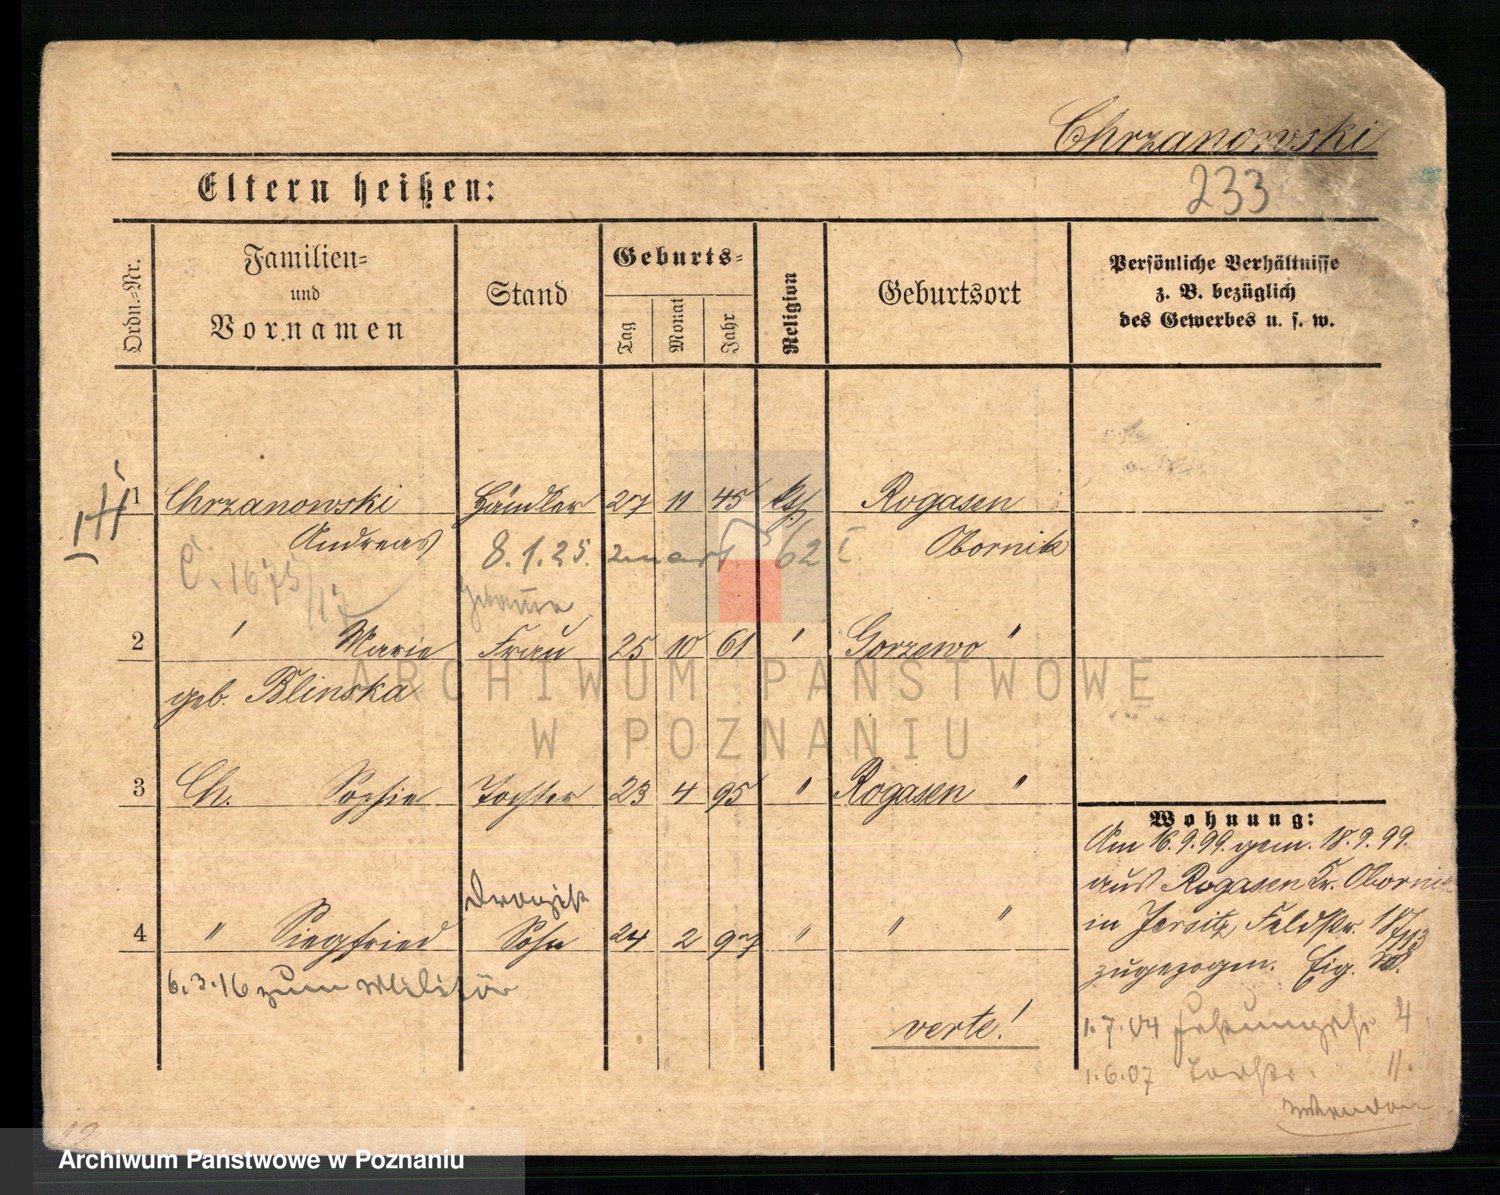 Chrzanowski
233
Eltern heißen:
Ordn.=Nr.
Familien=
und
Vornamen
Stand
Geburts=
Tag
Monat
Jahr
Religion
Geburtsort
Persönliche Verhältnisse
z. B. bezüglich
des Gewerbes u. s. w.
1 Chrzanowski Händler 27 11 45 Rogasen
Andreas Obornik
8.1.25. 62
C. 1675/17
2 Marie Frau 25 10 61 Gorzewo "
geb. Blinska
3 Ch. Sophie Tochter 23 4 95 " Rogasen "
Drogist
4 " Siegfried Sohn 24 2 97 " " "
6.3.16 zum Militär
verte!
Wohnung:
Am 16.9.99. gem. 18.9.99.
aus Rogasen Kr. Obornik
in Jersitz, Feldstr.
zugezogen.
1.7.04 4
1.6.07 11.
ARCHIWUM PAŃSTWOWE
W POZNANIU
Archiwum Państwowe w Poznaniu